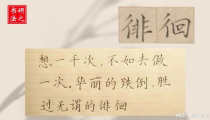 书法之研
徘徊
想一千次，不如去做
一次，华丽的跌倒，胜
过无谓的徘徊